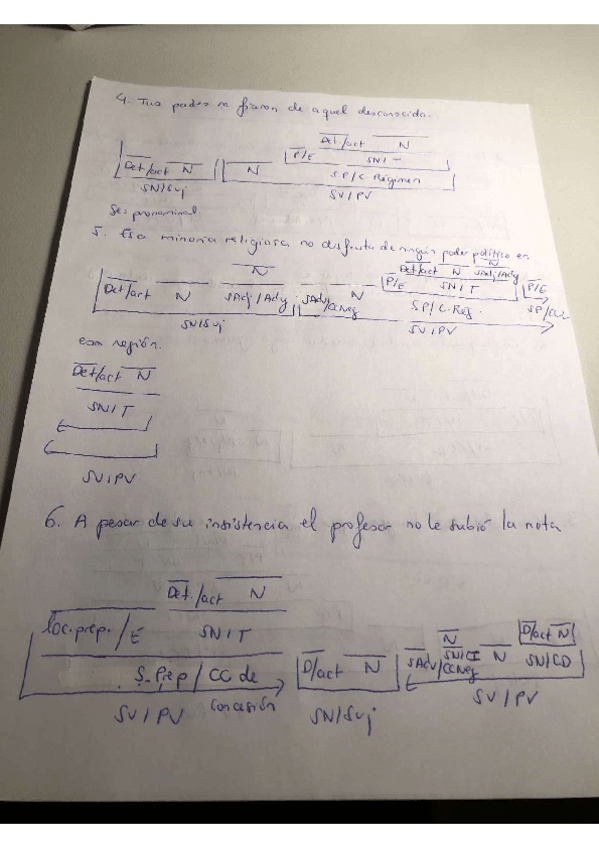 4. Tus padres se fiaron de aquel desconocido.
Det/act N
P/E SN/T
Det/act N N S.P/C. Régimen
SN/Suj SV/PV
Se: pronominal.
5. Esa minoría religiosa no disfruta de ningún poder político en
N
N Det/act N SAdj/Ady
Det/act N SAdj/Ady SAdv/CCNeg N P/E SN/T P/E
S.P/C. Reg. SP/CCL
SN/Suj SV/PV
esa región.
Det/act N
SN/T
SV/PV
6. A pesar de su insistencia el profesor no le subió la nota
Det./act N
loc.prep./E SN/T
N D/act N
S.Prep/CC de D/act N SAdv/CCNeg SN/CI N SN/CD
SV/PV concesión SN/Suj SV/PV